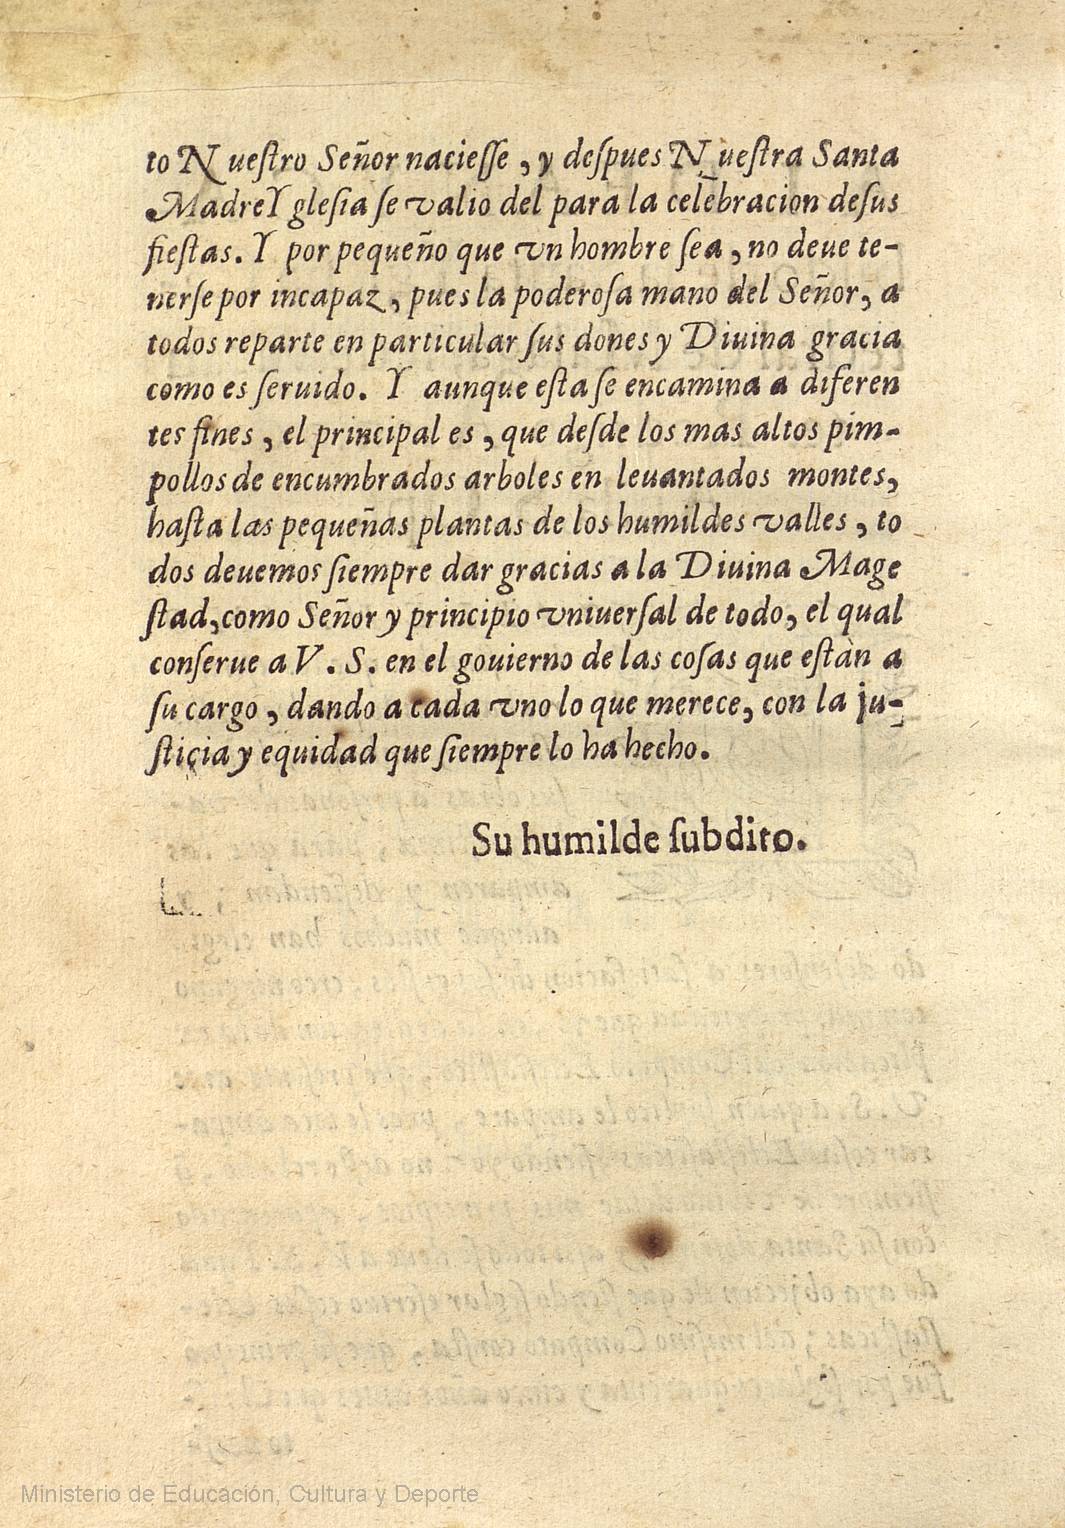 to Nueſtro Señor nacieſſe, y deſpues Nueſtra Santa
Madre Ygleſia ſe valio del para la celebracion de ſus
fieſtas. Y por pequeño que vn hombre ſea, no deue te-
nerſe por incapaz, pues la poderoſa mano del Señor, a
todos reparte en particular ſus dones y Diuina gracia
como es ſeruido. Y aunque eſta ſe encamina a diferen
tes fines, el principal es, que deſde los mas altos pim-
pollos de encumbrados arboles en leuantados montes,
haſta las pequeñas plantas de los humildes valles, to
dos deuemos ſiempre dar gracias a la Diuina Mage
ſtad, como Señor y principio vniuerſal de todo, el qual
conſerue a V. S. en el gouierno de las coſas que eſtàn a
ſu cargo, dando a cada vno lo que merece, con la ju-
ſticia y equidad que ſiempre lo ha hecho.
Su humilde ſubdito.
Ministerio de Educación, Cultura y Deporte